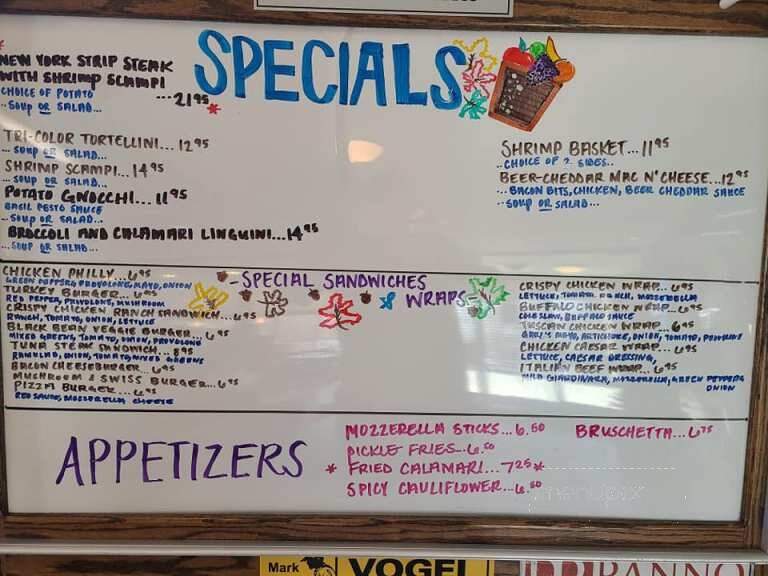 SPECIALS
NEW YORK STRIP STEAK
WITH SHRIMP SCAMPI
...21 95
CHOICE OF POTATO
..SOUP OR SALAD...
TRI-COLOR TORTELLINI...12 95
..SOUP OR SALAD...
SHRIMP SCAMPI...14 95
..SOUP OR SALAD...
POTATO GNOCCHI...11 95
BASIL PESTO SAUCE
..SOUP OR SALAD...
BROCCOLI AND CALAMARI LINGUINI...14 95
..SOUP OR SALAD...
SHRIMP BASKET...11 95
..CHOICE OF 2 SIDES..
BEER-CHEDDAR MAC N' CHEESE...12 95
..BACON BITS, CHICKEN, BEER CHEDDAR SAUCE
..SOUP OR SALAD...
-SPECIAL SANDWICHES
& WRAPS-
CHICKEN PHILLY...6 95
GREEN PEPPERS PROVOLONE, MAYO, ONION
TURKEY BURGER...6 95
RED PEPPER, PROVOLONE, MUSHROOM
CRISPY CHICKEN RANCH SANDWICH...6 95
RANCH, TOMATO, ONION, LETTUCE
BLACK BEAN VEGGIE BURGER...6 95
MIXED GREENS, TOMATO, ONION, PROVOLONE
TUNA STEAK SANDWICH...8 95
ONION, TOMATO, MIXED GREENS
BACON CHEESEBURGER...6 95
MUSHROOM & SWISS BURGER...6 95
PIZZA BURGER...6 95
RED SAUCE, MOZZERELLA CHEESE
CRISPY CHICKEN WRAP...6 95
LETTUCE, TOMATO, RANCH, MOZZERELLA
BUFFALO CHICKEN WRAP...6 95
COLE SLAW, BUFFALO SAUCE
TUSCAN CHICKEN WRAP...6 95
GARLIC MAYO, ARTICHOKE, ONION, TOMATO, PROVOLONE
CHICKEN CAESAR WRAP...6 95
LETTUCE, CAESAR DRESSING,
ITALIAN BEEF WRAP...6 95
MILD GIARDINARA, MOZZERELLA, GREEN PEPPERS
ONION
APPETIZERS
MOZZERELLA STICKS...6.50
PICKLE FRIES...6.50
* FRIED CALAMARI...7 25 *
SPICY CAULIFLOWER...6.50
BRUSCHETTA...6 75
menupix
Mark
VOGEL
PANNO